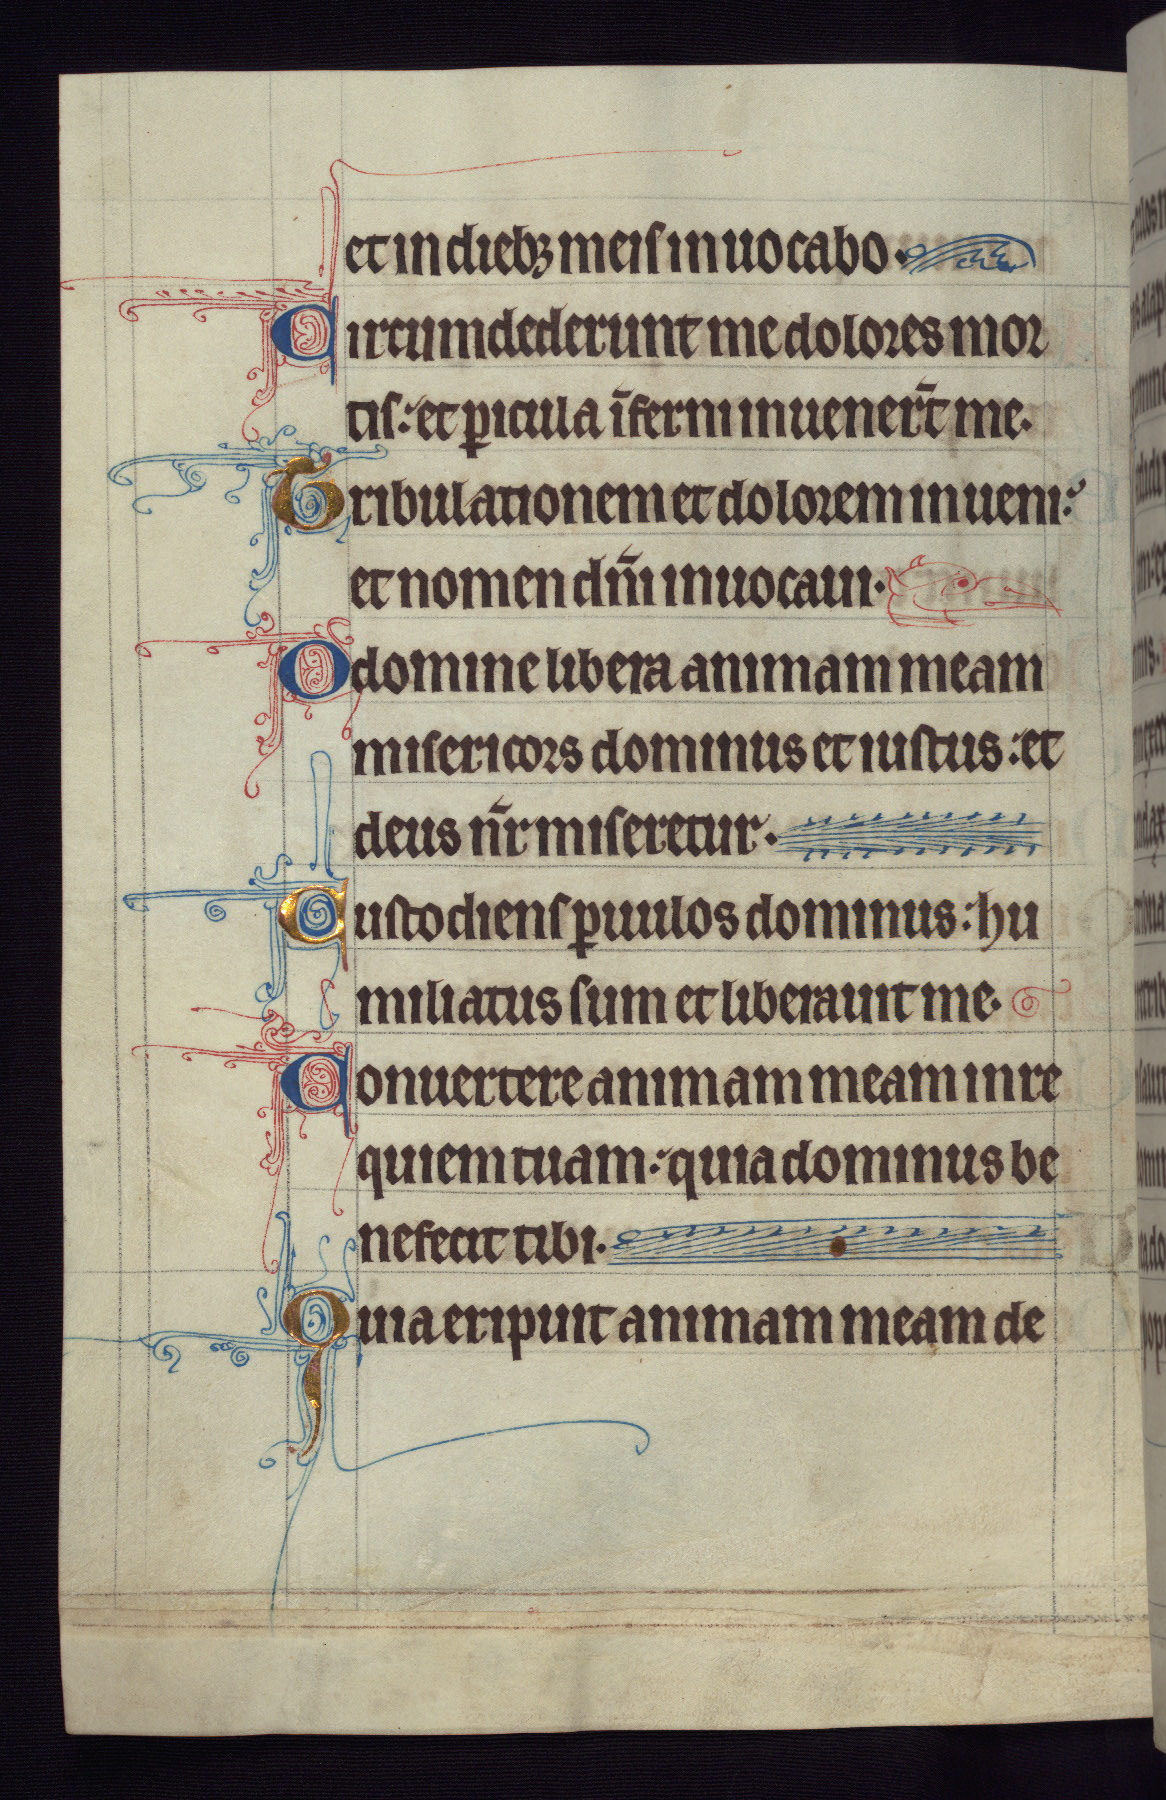 et in diebꝫ meiſ inuocabo.
Circumdederunt me dolores mor
tiſ: et ꝑicula īferni inuener̄t me.
Tribulationem et dolorem inueni:
et nomen dm̄i inuocaui.
O domine libera animam meam
miſericors dominus et iuſtus: et
deus nr̄ miſeretur.
Cuſtodienſ ꝑuulos dominus: hu
miliatus ſum et liberauit me.
Conuertere animam meam in re
quiem tuam: quia dominus be
nefecit tibi.
Quia eripuit animam meam de